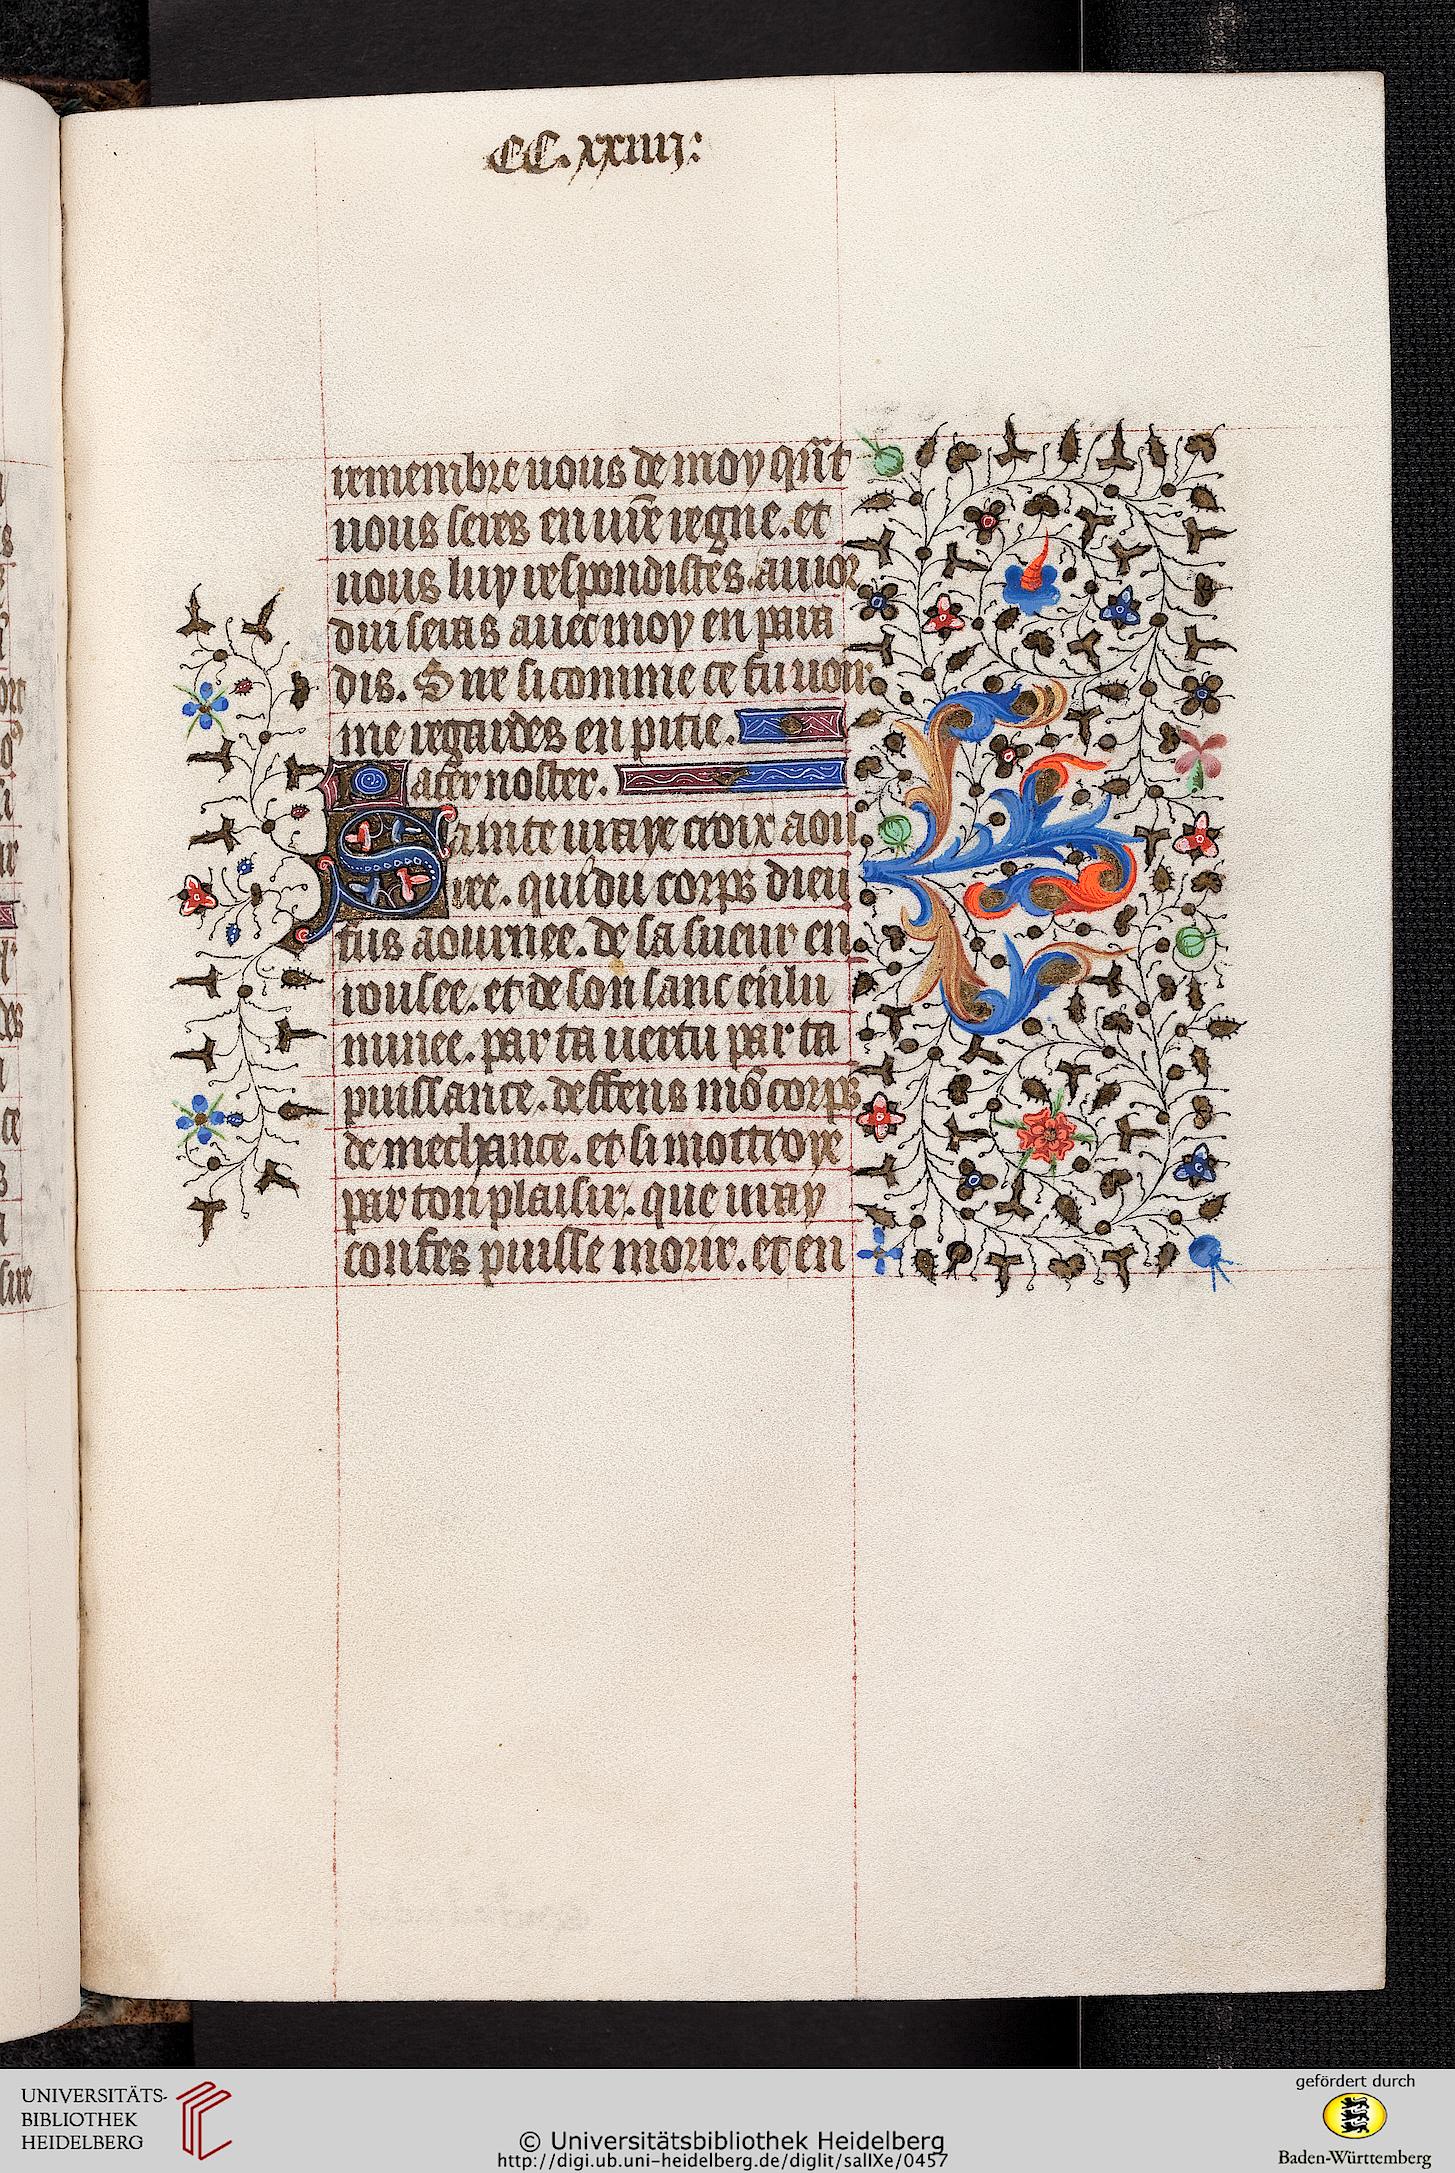 CC.xxiiij:
remembre vous de moy qñt
vous seres en vr̃e regne. et
vous luy respondistes. au ior
dui seras auec moy en para
dis. Sire si comme ce fu voir
me regardes en pitie.
Pater noster.
Sainte vraye croix aou
ree. qui du corps dieu
fus aournee. de sa sueur en
rousee. et de son sanc enlu
minee. par ta vertu par ta
puissance. deffens mõ corps
de mechance. et si mottroye
par ton plaisir. que vray
confes puisse morir. et en
UNIVERSITÄTS-
BIBLIOTHEK
HEIDELBERG
© Universitätsbibliothek Heidelberg
http://digi.ub.uni-heidelberg.de/diglit/salIXe/0457
gefördert durch
Baden-Württemberg